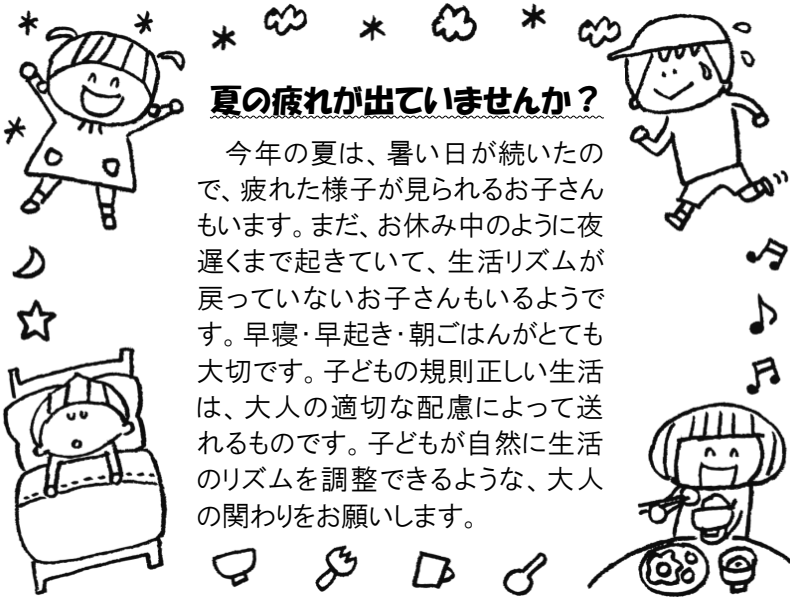 夏の疲れが出ていませんか？
　今年の夏は、暑い日が続いたの
で、疲れた様子が見られるお子さん
もいます。まだ、お休み中のように夜
遅くまで起きていて、生活リズムが
戻っていないお子さんもいるようで
す。早寝・早起き・朝ごはんがとても
大切です。子どもの規則正しい生活
は、大人の適切な配慮によって送
れるものです。子どもが自然に生活
のリズムを調整できるような、大人
の関わりをお願いします。